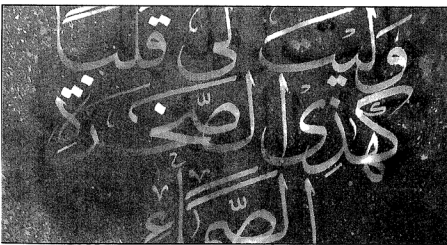 وليت لي قلباً
كهذي الصخرة
الصمّاء